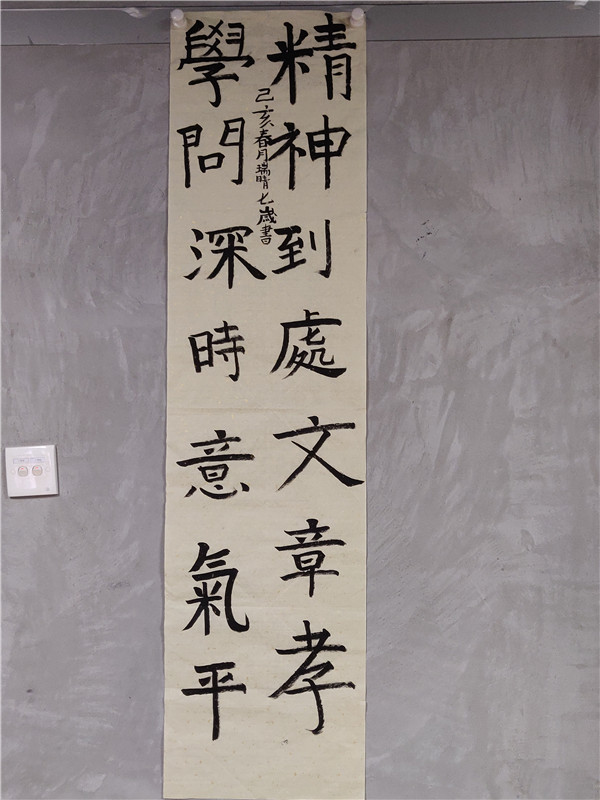 精神到處文章孝
學問深時意氣平
己亥春月瑞晴七歲書